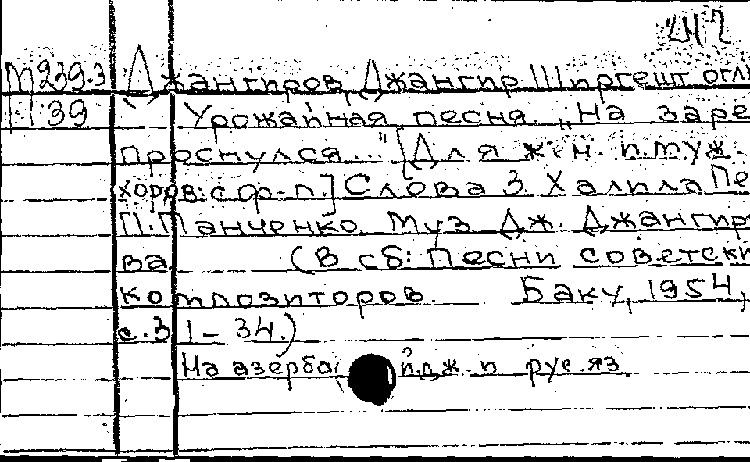 М239.3 Джангиров, Джангир Ширгешт оглы
П 39 Урожайная песня. „На заре
проснулся..." [Для жен. и муж.
хоров: с ф-п.] Слова З. Халила Пе
П. Панченко. Муз. Дж. Джангиро
ва. (В сб: Песни советски
композиторов. Баку, 1954,
с. 31-34.)
На азербайдж. и рус. яз.